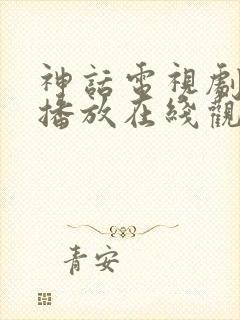 神話電視劇
播放在綫觀
青安